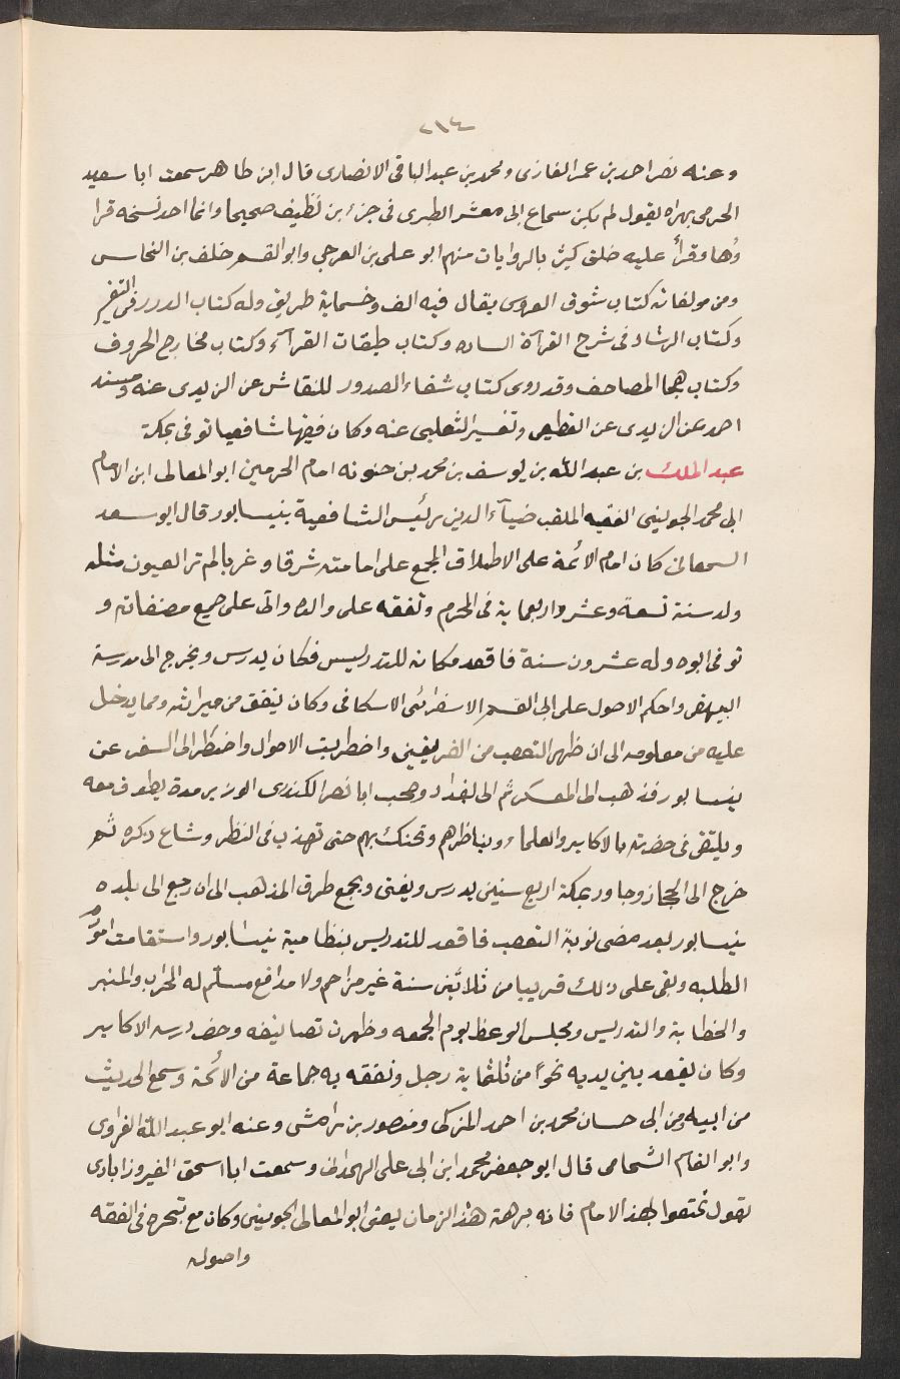 ٢١٤
وعنه نصر احمد بن عمر الغازى ومحمد بن عبد الباقى الانصارى قال ابن طاهر سمعت ابا سعيد
الحرمى بهراه يقول لم يكن سماع ابى معشر الطبرى فى جزء ابن نظيف صحيحا وانما اخذ نسخه فرا
وُها وقرأ عليه خلق كثير بالروايات منهم ابو على بن العرجى وابو القسم خلف بن النخاس
ومن مولفاته كتاب شوق العروس يقال فيه الف وخسماية طريق وله كتاب الدرر فى التفسير
وكتاب الرشاد فى شرح القرآة الساده وكتاب طبقات القرآء وكتاب مخارج الحروف
وكتاب هجا المصاحف وقد روى كتاب شفاء الصدور للنقاش عن الزيدى عنه ومسند
احمد عن الزيدى عن القطيعى وتفسير الثعلبى عنه وكان فقيها شافعيا توفى بمكة
عبد الملك بن عبد الله بن يوسف بن محمد بن حيويه امام الحرمين ابو المعالى ابن الامام
ابى محمد الجوينى الفقيه الملقب ضيآء الدين رئيس الشافعية بنيسابور قال ابو سعد
السمعانى كان امام الائمة على الاطلاق المجمع على امامته شرقا وغربا لم تر العيون مثله
ولد سنة تسعة وعشر واربعماية فى المحرم وتفقه على والده واتى على جميع مصنفاته و
توفى ابوه وله عشرون سنة فاقعد مكانه للتدريس فكان يدرس ويخرج الى مدرسة
البيهقى واحكم الاصول على ابى القسم الاسفرائنى الاسكافى وكان ينفق من ميراثه ومما يدخل
عليه من معلومه الى ان ظهر التعصب من الفريقين واضطربت الاحوال واضطر الى السفر عن
نيسابور فذهب الى المعسكر ثم الى بغداد وصحب ابا نصر الكندرى الوزير مدة يطوف معه
ويلتقى فى حضرته بالاكابر والعلماء ويناظرهم وتحنك بهم حتى تهذب فى النظر وشاع ذكره ثم
خرج الى الحجاز وجاور بمكة اربع سنين يدرس ويفتى ويجمع طرق المذهب الى ان رجع الى بلده
نيسابور بعد مضى نوبة التعصب فاقعد للتدريس بنظامية نيسابور واستقامت امور
الطلبه وبقى على ذلك قريبا من ثلاثين سنة غير مزاحم ولا مدافع مسلّم له المحراب والمنبر
والخطابة والتدريس ومجلس الوعظ يوم الجمعه وظهرت تصانيفه وحضر درسه الاكابر
وكان يقعد بين يديه نحوًا من ثلثماية رجل وتفقه به جماعة من الائمة وسمع الحديث
من ابيه ومن ابى حسان محمد بن احمد المزكى ومنصور بن رامش وعنه ابو عبد الله الفراوى
وابو القاسم الشحامى قال ابو جعفر محمد ابن ابى على الهمدانى وسمعت ابا اسحق الفيروزابادى
يقول تمتعوا بهذا الامام فانه برهة هذا الزمان يعنى ابو المعالى الجوينى وكان مع تبحره فى الفقه
واصوله